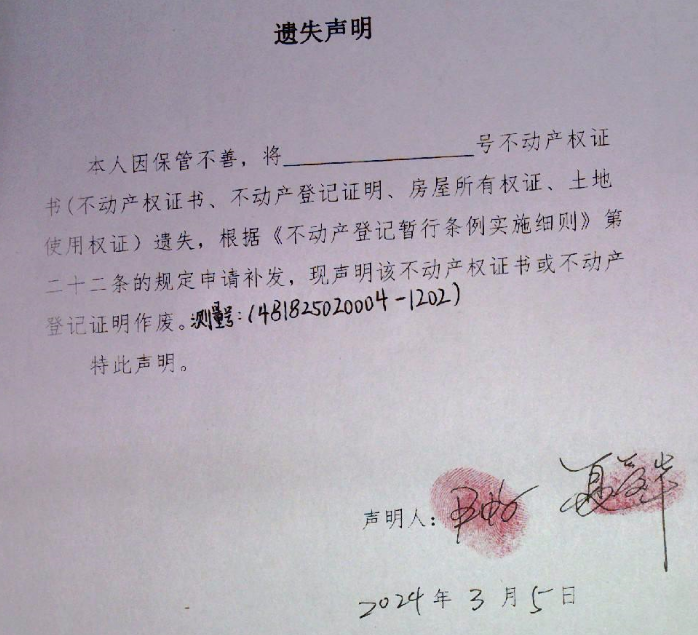 遗失声明
本人因保管不善，将____________号不动产权证
书(不动产权证书、不动产登记证明、房屋所有权证、土地
使用权证）遗失，根据《不动产登记暂行条例实施细则》第
二十二条的规定申请补发，现声明该不动产权证书或不动产
登记证明作废。测量号:(481825020004-1202)
特此声明。
声明人：
2024年3月5日